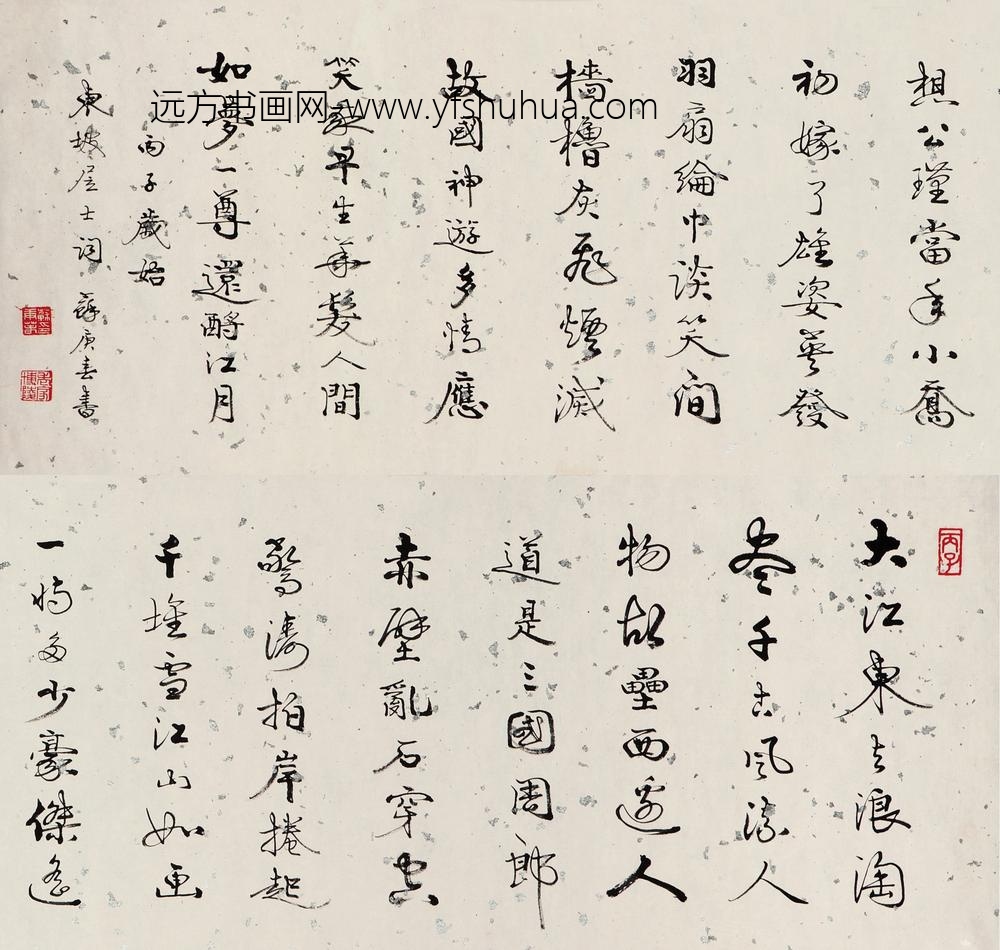 丙子
大江東去浪淘
盡千古風流人
物故壘西邊人
道是三國周郎
赤壁亂石穿空
驚濤拍岸捲起
千堆雪江山如画
一時多少豪傑遙
想公瑾當年小喬
初嫁了雄姿英發
羽扇綸巾談笑間
檣櫓灰飛煙滅
故國神遊多情應
笑我早生華髮人間
如夢一尊還酹江月
丙子歲始
東坡居士詞 蘇庚春書
远方书画网 www.yfshuhua.com